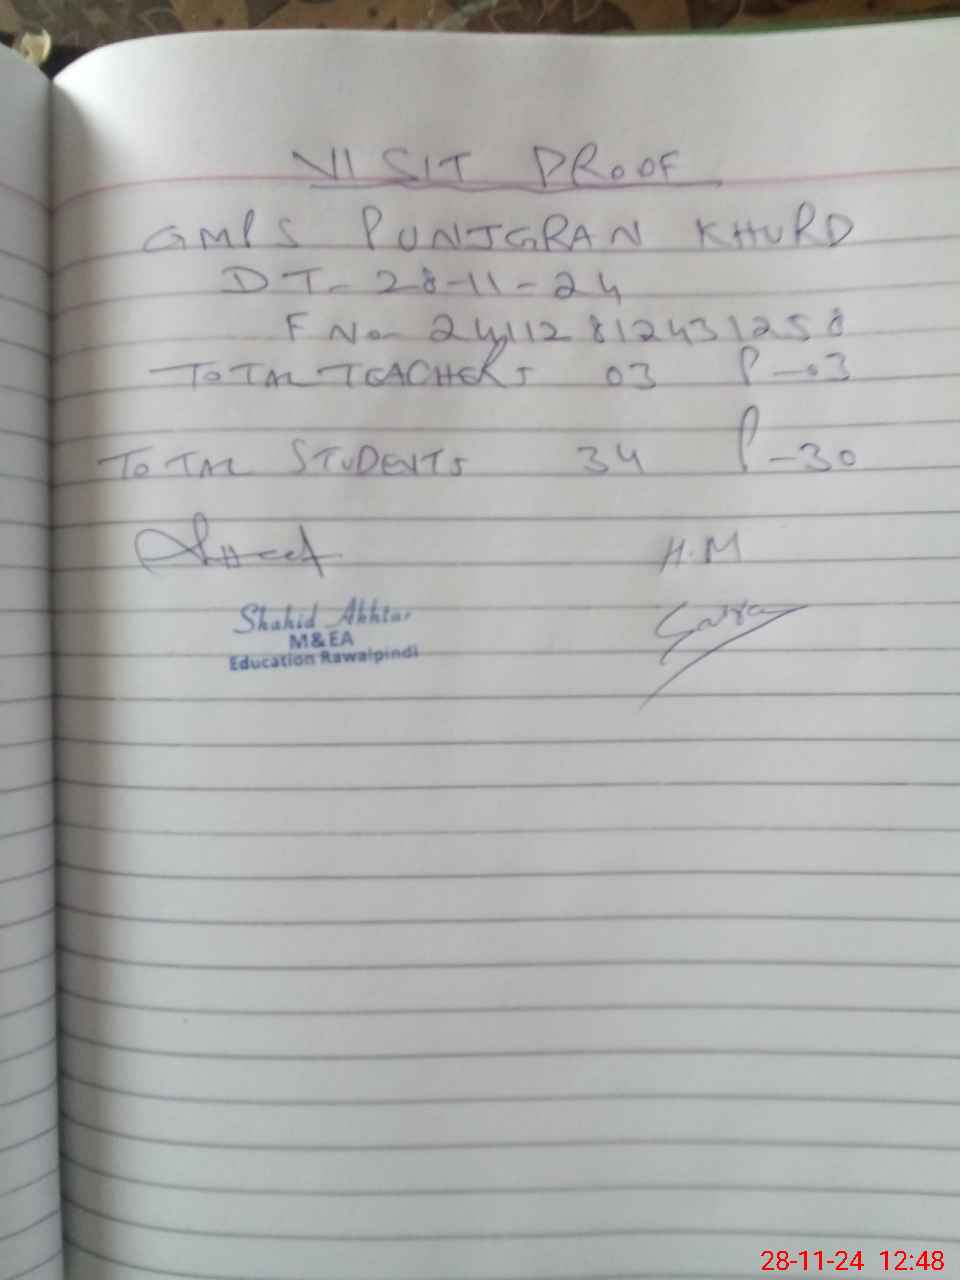 VISIT PROOF
GMPS PUNJGRAN KHURD
DT- 28-11-24
F No- 24112812431258
TOTAL TEACHERS 03 P-03
TOTAL STUDENTS 34 P-30
H.M
Shahid Akhtar
M&EA
Education Rawalpindi
28-11-24 12:48